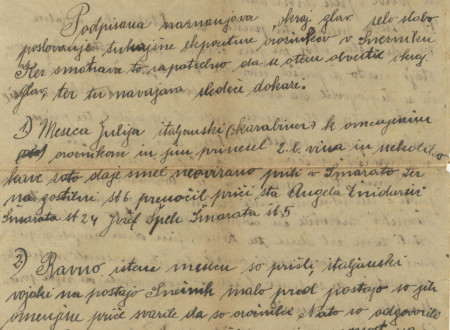 Podpisana naznanjava okraj. glav. zelo slabo
poslovanje tukajšne ekpoziture orožnikov v
Ker smatrava to za potrebno da se o tem obvesti okraj.
glav. ter tu navajava sledeče dokaze.
1) Meseca Julija italjanski (karabiner) k omenjenim
orožnikom in jim prinesel 2.l. vina in nekoliko
kave zato da je smel neovirano priti v Šmarato ter
na gostilni št 6. prenočil priči sta Angela
Šmarata št 24 Jožef Špeh Šmarata št 5
2) Ravno istega meseca so prišli italjanski
vojaki na postajo Snežnik malo pred postajo so jih
omenjene priče svarile da so orožniki Nato so odgovorili